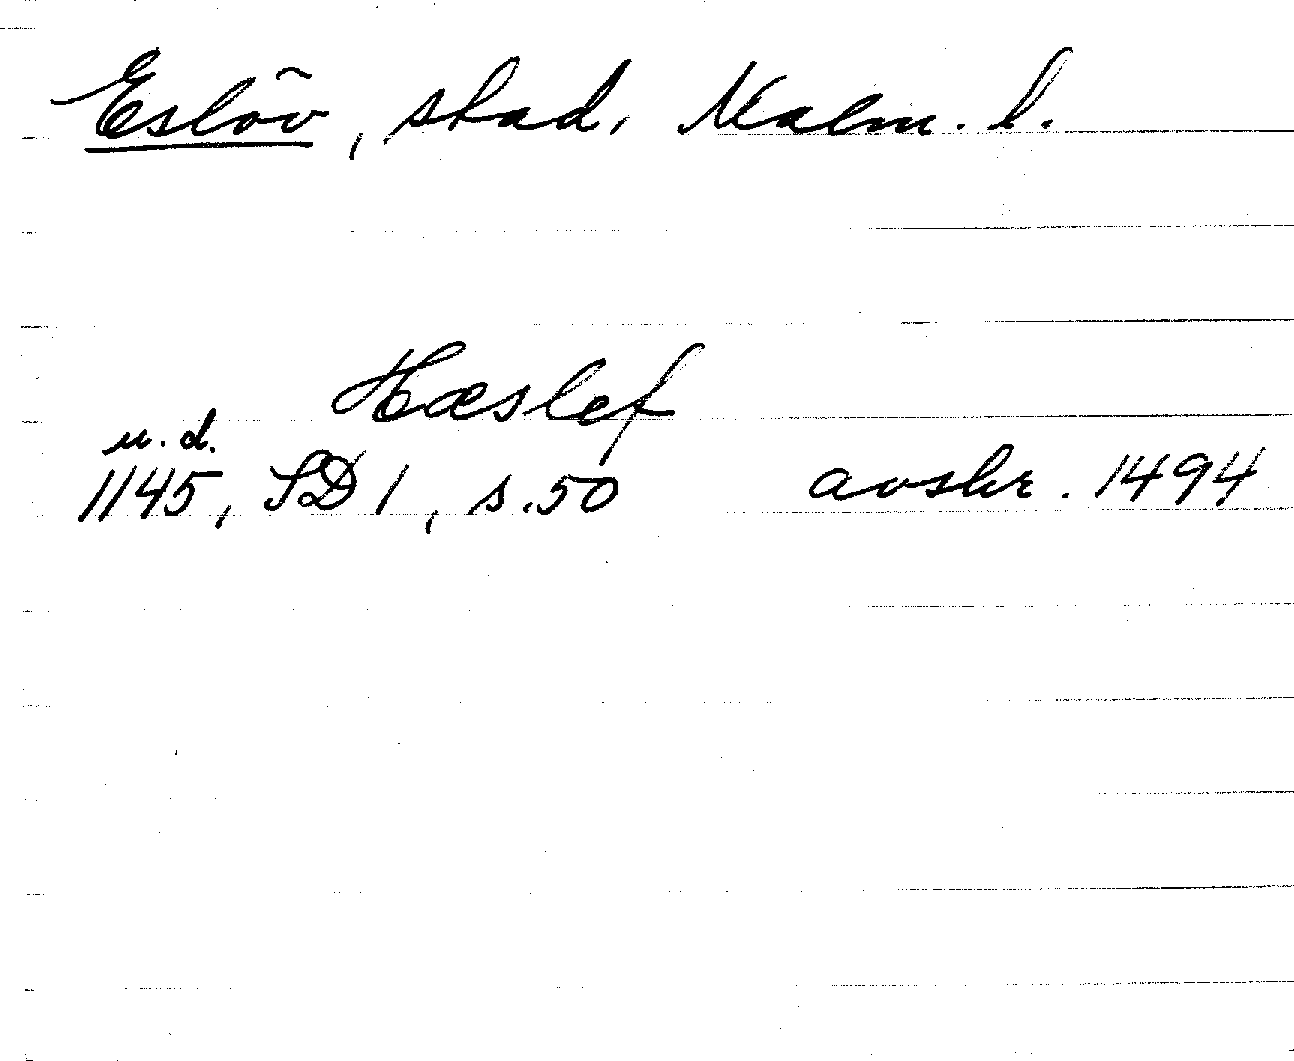 Eslöv, stad, Malm. l.
Hæslef
u. d.
1145, SD 1, s. 50 avskr. 1494